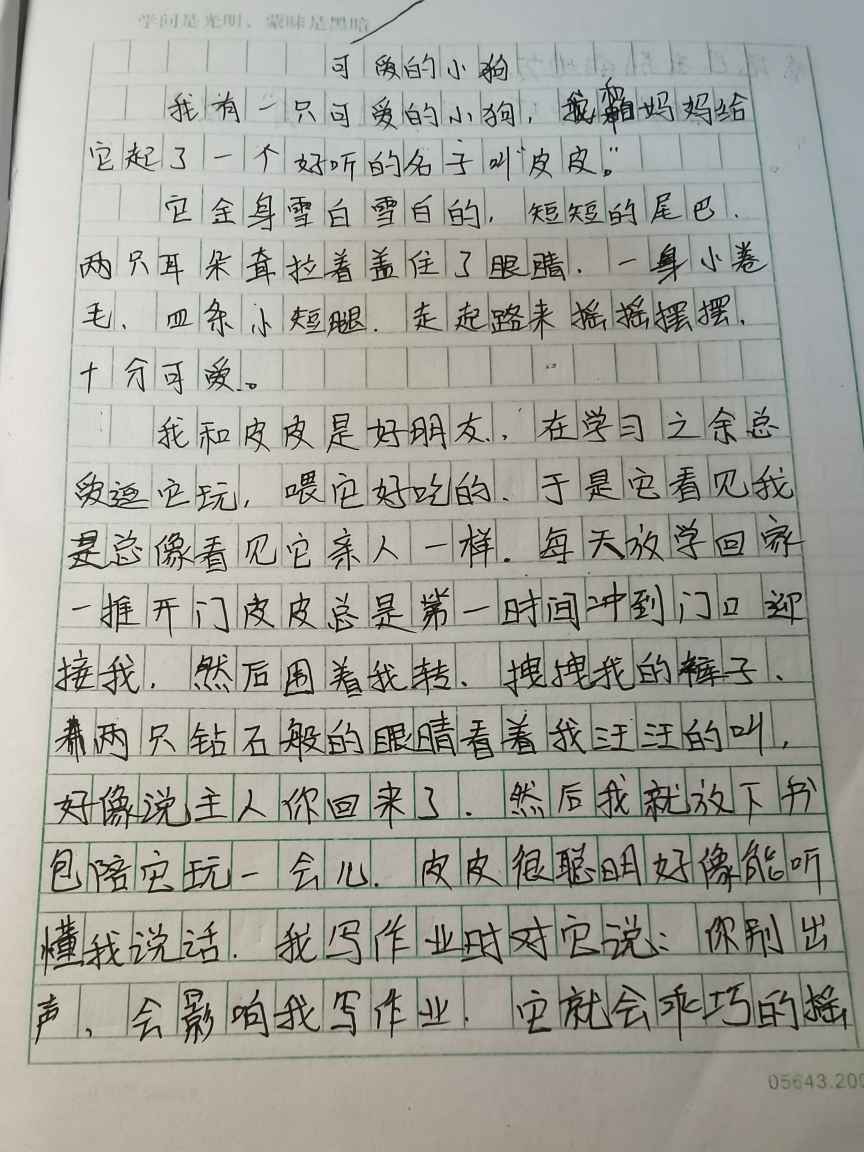 学问是光明，蒙昧是黑暗
可爱的小狗
我有一只可爱的小狗，我和妈妈给
它起了一个好听的名子叫“皮皮”。
它全身雪白雪白的，短短的尾巴．
两只耳朵耷拉着盖住了眼睛．一身小卷
毛、四条小短腿．走起路来摇摇摆摆，
十分可爱。
我和皮皮是好朋友，在学习之余总
爱逗它玩，喂它好吃的、于是它看见我
总像看见它亲人一样．每天放学回家
一推开门皮皮总是第一时间冲到门口迎
接我．然后围着我转、拽拽我的裤子、
两只钻石般的眼睛看着我汪汪的叫，
好像说主人你回来了．然后我就放下书
包陪它玩一会儿．皮皮很聪明好像能听
懂我说话．我写作业时对它说：你别出
声、会影响我写作业．它就会乖巧的摇
05643.200